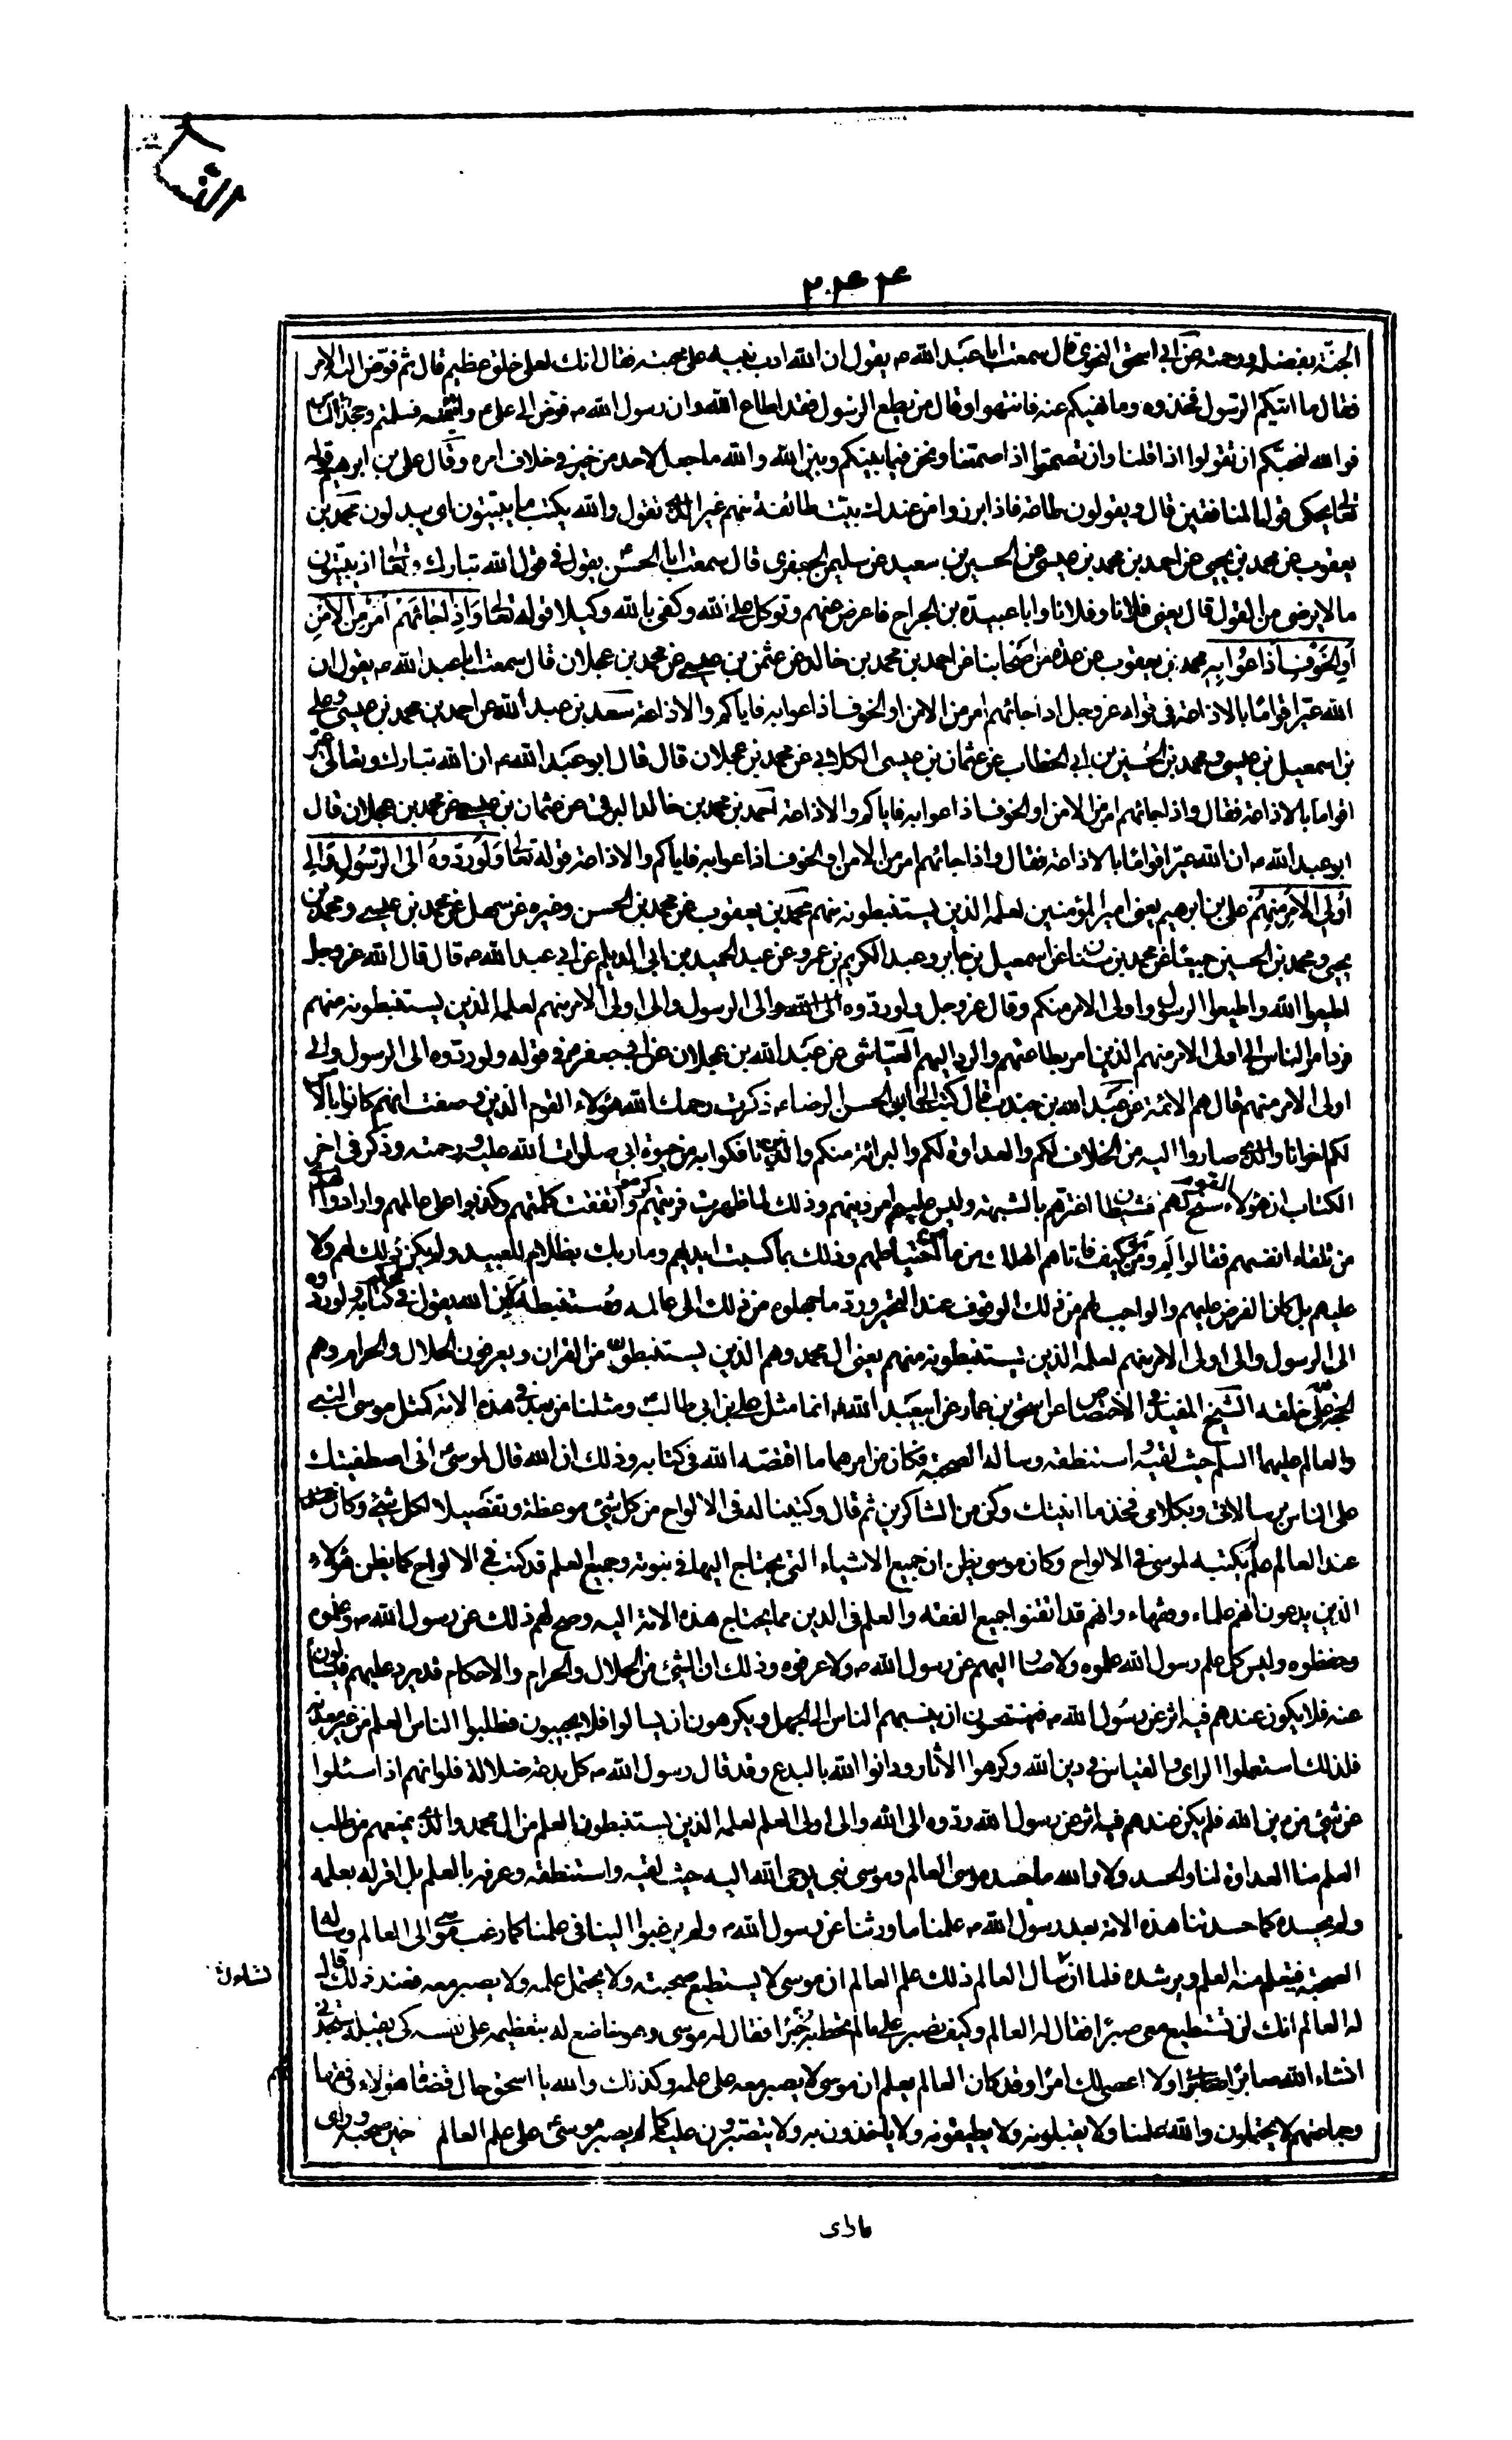 النساء
الجنّة بفضل ورحمته عن ابى اسحق النحوى قال سمعت ابا عبد الله يقول ان الله ادب نبيه على محبته فقال انك لعلى خلق عظيم قال ثم فوّض اليه الامر
فقال ما اتيكم الرسول فخذوه وما نهيكم عنه فانتهوا وقال من يطع الرسول فقد اطاع الله وان رسول الله فوّض الى على وائتمنه فسلمتم وجحد الناس
فوالله لنحبّكم ان تقولوا اذا قلنا وان تصمتوا اذا صمتنا ونحن فيما بينكم وبين الله والله ما جعل لاحد من خير فى خلاف امره وقال على بن ابرهيم قوله
تعالى يحكى قول المنافقين قال ويقولون طاعة فاذا برزوا من عندك بيّت طائفة منهم غير الذى تقول والله يكتب ما يبيّتون اى يبدلون محمد بن
يعقوب عن محمد بن يحيى عن احمد بن محمد بن عيسى عن الحسين بن سعيد عن سليمن الجعفرى قال سمعت ابا الحسن يقول فى قول الله تبارك وتعالى اذ يبيّتون
ما لا يرضى من القول قال يعنى فلانا وفلانا وابا عبيدة بن الجراح فاعرض عنهم وتوكل على الله وكفى بالله وكيلا قوله تعالى وَاِذا جائَهُمْ اَمْرٌ مِنَ الْاَمْنِ
اَوِ الْخَوْفِ اَذاعُوا بِهِ محمد بن يعقوب عن عدة من اصحابنا عن احمد بن محمد بن خالد عن عثمن بن عيسى عن محمد بن عجلان قال سمعت ابا عبد الله يقول ان
الله عيّر اقواما بالاذاعة فى قوله عز وجل اذا جائهم امر من الامن او الخوف اذاعوا به فاياكم والاذاعة سعد بن عبد الله عن احمد بن محمد بن عيسى وعلى
بن اسمعيل بن عيسى ومحمد بن الحسين بن ابى الخطاب عن عثمان بن عيسى الكلابى عن محمد بن عجلان قال قال ابو عبد الله ان الله تبارك وتعالى عيّر
اقواما بالاذاعة فقال واذا جائهم امر من الامن او الخوف اذاعوا به فاياكم والاذاعة احمد بن محمد بن خالد البرقى عن عثمان بن عيسى عن محمد بن عجلان قال
ابو عبد الله ان الله عيّر اقواما بالاذاعة فقال واذا جائهم امر من الامن او الخوف اذاعوا به فاياكم والاذاعة قوله تعالى وَلَوْ رَدُّوهُ اِلَى الرَّسُولِ وَاِلى
اُولِى الْاَمْرِ مِنْهُمْ على بن ابرهيم يعنى امير المؤمنين لعلمه الذين يستنبطونه منهم محمد بن يعقوب عن محمد بن الحسن وغيره عن سهل عن محمد بن عيسى ومحمد بن
يحيى ومحمد بن الحسين جميعا عن محمد بن سنان عن اسمعيل بن جابر وعبد الكريم بن عمرو عن عبد الحميد بن ابى الديلم عن ابى عبد الله قال قال الله عز وجل
اطيعوا الله واطيعوا الرسول واولى الامر منكم وقال عز وجل ولو ردّوه الى الله والى الرسول والى اولى الامر منهم لعلمه الذين يستنبطونه منهم
فرد امر الناس الى اولى الامر منهم الذين امر بطاعتهم والرد اليهم العيّاشى عن عبد الله بن عجلان عن ابى جعفر فى قوله ولو ردّوه الى الرسول والى
اولى الامر منهم قال هم الائمة عن عبد الله بن جندب قال كتب الى ابو الحسن الرضا ذكرت رحمك الله هؤلاء القوم الذين وصفت انهم كانوا بالامس
لكم اخوانا والذى صاروا اليه من الخلاف لكم والعداوة لكم والبرائة منكم والذين تافكوا به من حيوة ابى صلوات الله عليه ورحمته وذكر فى اخر
الكتاب ان هؤلاء القوم سنح لهم شيطان اغترّهم بالشبهة ولبس عليهم امر دينهم وذلك لما ظهرت فريتهم واتفقت كلمتهم وكذبوا على عالمهم وارادوا الهدى
من تلقاء انفسهم فقالوا لم ومن وكيف فاتاهم الهلاك من مأمن احتياطهم وذلك بما كسبت ايديهم وما ربك بظلام للعبيد ولم يكن ذلك لهم ولا
عليهم بل كان الفرض عليهم والواجب لهم من ذلك الوقوف عند التحير وردّ ما جهلوه من ذلك الى عالمه ومستنبطه لان الله يقول فى محكم كتابه ولو ردّوه
الى الرسول والى اولى الامر منهم لعلمه الذين يستنبطونه منهم يعنى ال محمد وهم الذين يستنبطون من القران ويعرفون الحلال والحرام وهم
الحجة على خلقه الشيخ المفيد فى الاختصاص عن اسحق بن عمار عن ابى عبد الله انما مثل على بن ابى طالب ومثلنا من بعده فى هذه الامة كمثل موسى النبى
والعالم عليهما السلم حيث لقيه استنطقه وساله الصحبة فكان من امرهما ما اقتصّه الله فى كتابه وذلك ان الله قال لموسى انى اصطفيتك
على الناس برسالاتى وبكلامى فخذ ما اتيتك وكن من الشاكرين ثم قال وكتبنا له فى الالواح من كل شئ موعظة وتفصيلا لكل شئ وكان
عند العالم علم لم يكتبه لموسى فى الالواح وكان موسى يظن ان جميع الاشياء التى يحتاج اليها فى نبوته وجميع العلم قد كتب فى الالواح كما يظن هؤلاء
الذين يدعون انهم علماء وفقهاء وانهم قد اتقنوا جميع الفقه والعلم فى الدين مما يحتاج هذه الامة اليه وصح لهم ذلك عن رسول الله وعلموه
وحفظوه وليس كل علم رسول الله علموه ولا صار اليهم عن رسول الله ولا عرفوه وذلك ان الشئ من الحلال والحرام والاحكام قد يرد عليهم فيسألون
عنه فلا يكون عندهم فيه اثر عن رسول الله فيستحيون ان ينسبهم الناس الى الجهل ويكرهون ان يسالوا فلا يجيبون فطلبوا الناس العلم من غير معدنه
فلذلك استعملوا الراى والقياس فى دين الله وكرهوا الاثار ودانوا الله بالبدع وقد قال رسول الله كل بدعة ضلالة فلو انهم اذا سئلوا
عن شئ من دين الله فلم يكن عندهم فيه اثر عن رسول الله ردّوه الى الله والى اولى العلم لعلمه الذين يستنبطون العلم من ال محمد والذى يمنعهم من طلب
العلم منا العداوة لنا والحسد ولا والله ما حسد موسى العالم وموسى نبى يوحى الله اليه حيث لقيه واستنطقه وعرفه بالعلم بل اقر له بعلمه
ولم يحسده كما حسدتنا هذه الامة بعد رسول الله علمنا ما ورثنا عن رسول الله ولم يرغبوا الينا فى علمنا كما رغب موسى الى العالم وساله
الصحبة فيتعلم منه العلم ويرشده فلما ان سال العالم ذلك علم العالم ان موسى لا يستطيع صحبته ولا يحتمل علمه ولا يصبر معه فعند ذلك قال
له العالم انك لن تستطيع معى صبرا فقال له العالم وكيف تصبر على ما لم تحط به خبرا فقال له موسى وهو خاضع له بتعظيمه على نفسه كى يقبله ستجدنى
انشاء الله صابرا ولا اعصى لك امرا وقد كان العالم يعلم ان موسى لا يصبر معه على علمه وكذلك والله يا اسحق حال قضاة هؤلاء وفقهائهم
وجماعتهم لا يحتملون والله علمنا ولا يقبلونه ولا يطيقونه ولا ياخذون به ولا يتصبرون عليه كما لم يصبر موسى على علم العالم حين صحبه وراى